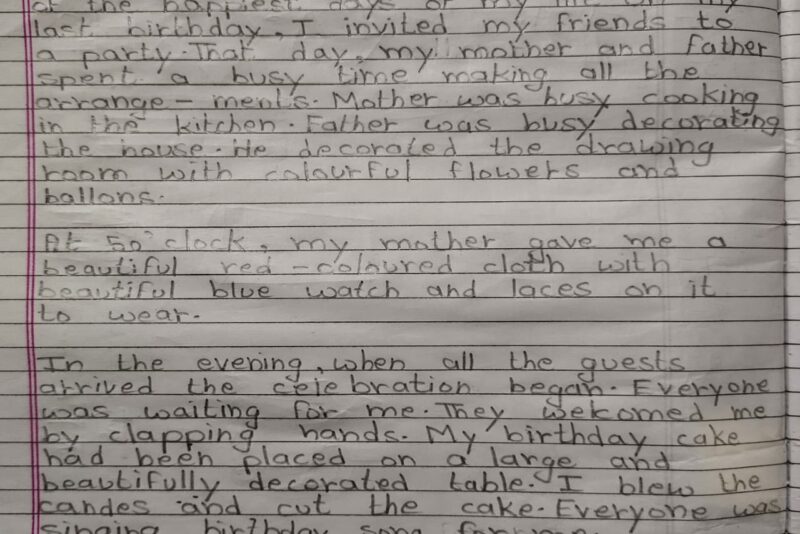 of the happiest days of my
last birthday, I invited my friends to
a party. That day, my mother and father
spent a busy time making all the
arrange - ments. Mother was busy cooking
in the kitchen. Father was busy decorating
the house. He decorated the drawing
room with colourful flowers and
ballons.
At 50'clock, my mother gave me a
beautiful red - coloured cloth with
beautiful blue watch and laces on it
to wear.
In the evening, when all the guests
arrived the celebration began. Everyone
was waiting for me. They welcomed me
by clapping hands. My birthday cake
had been placed on a large and
beautifully decorated table. I blew the
candes and cut the cake. Everyone was
singing birthday song for